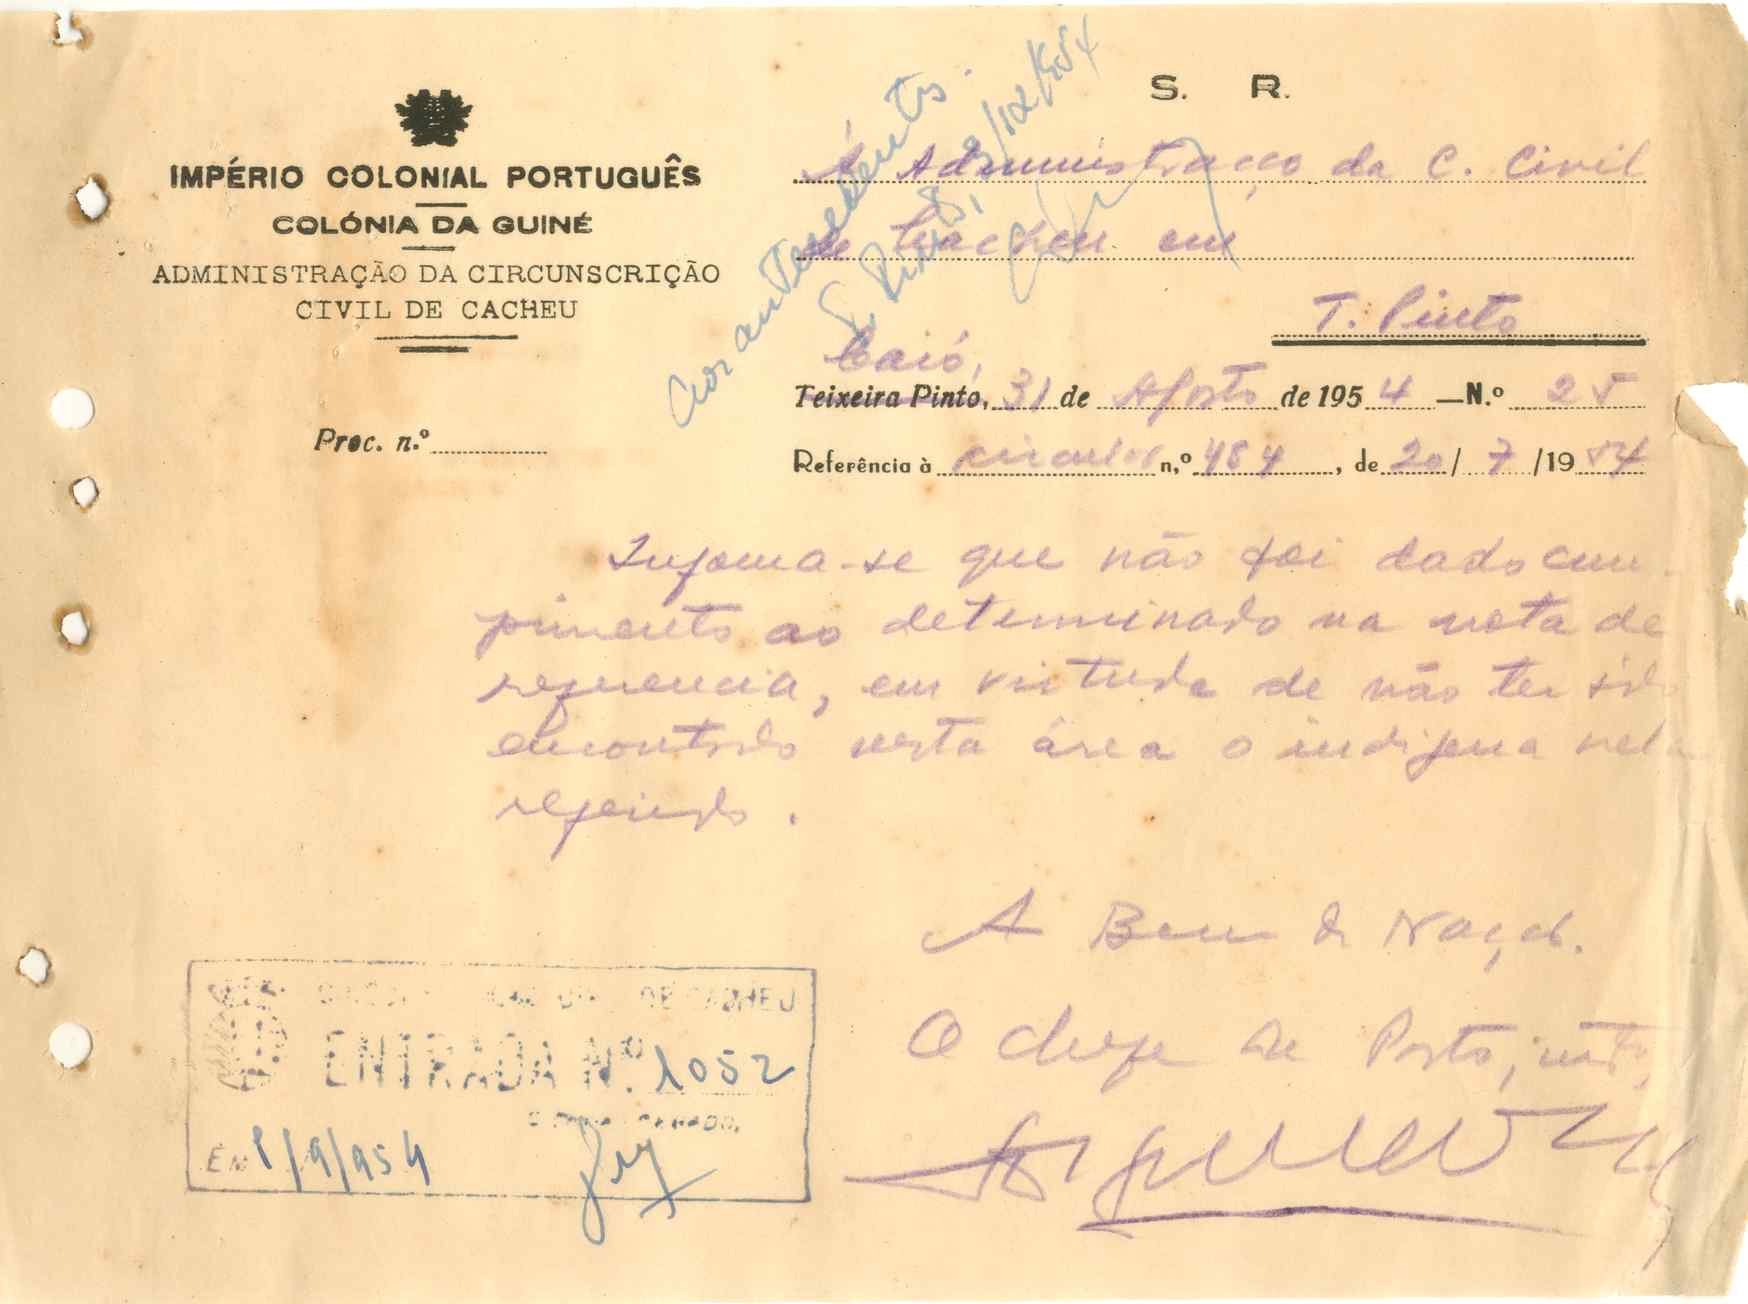 S. R.
IMPÉRIO COLONIAL PORTUGUÊS
COLÓNIA DA GUINÉ
ADMINISTRAÇÃO DA CIRCUNSCRIÇÃO
CIVIL DE CACHEU
Proc. n.º
Á Administração da C. Civil
de Cacheu em
T. Pinto
Caió,
Teixeira Pinto, 31 de Agosto de 1954 — N.º 25
Referência à circular n.º 484, de 20/7/1954
Informa-se que não foi dado cum-
primento ao determinado na nota de
referencia, em virtude de não ter sido
encontrado nesta área o indigena nela
referido.
A Bem da Nação.
O chefe de Posto, intº,
DE CACHEU
ENTRADA Nº. 1052
EM 1/9/954